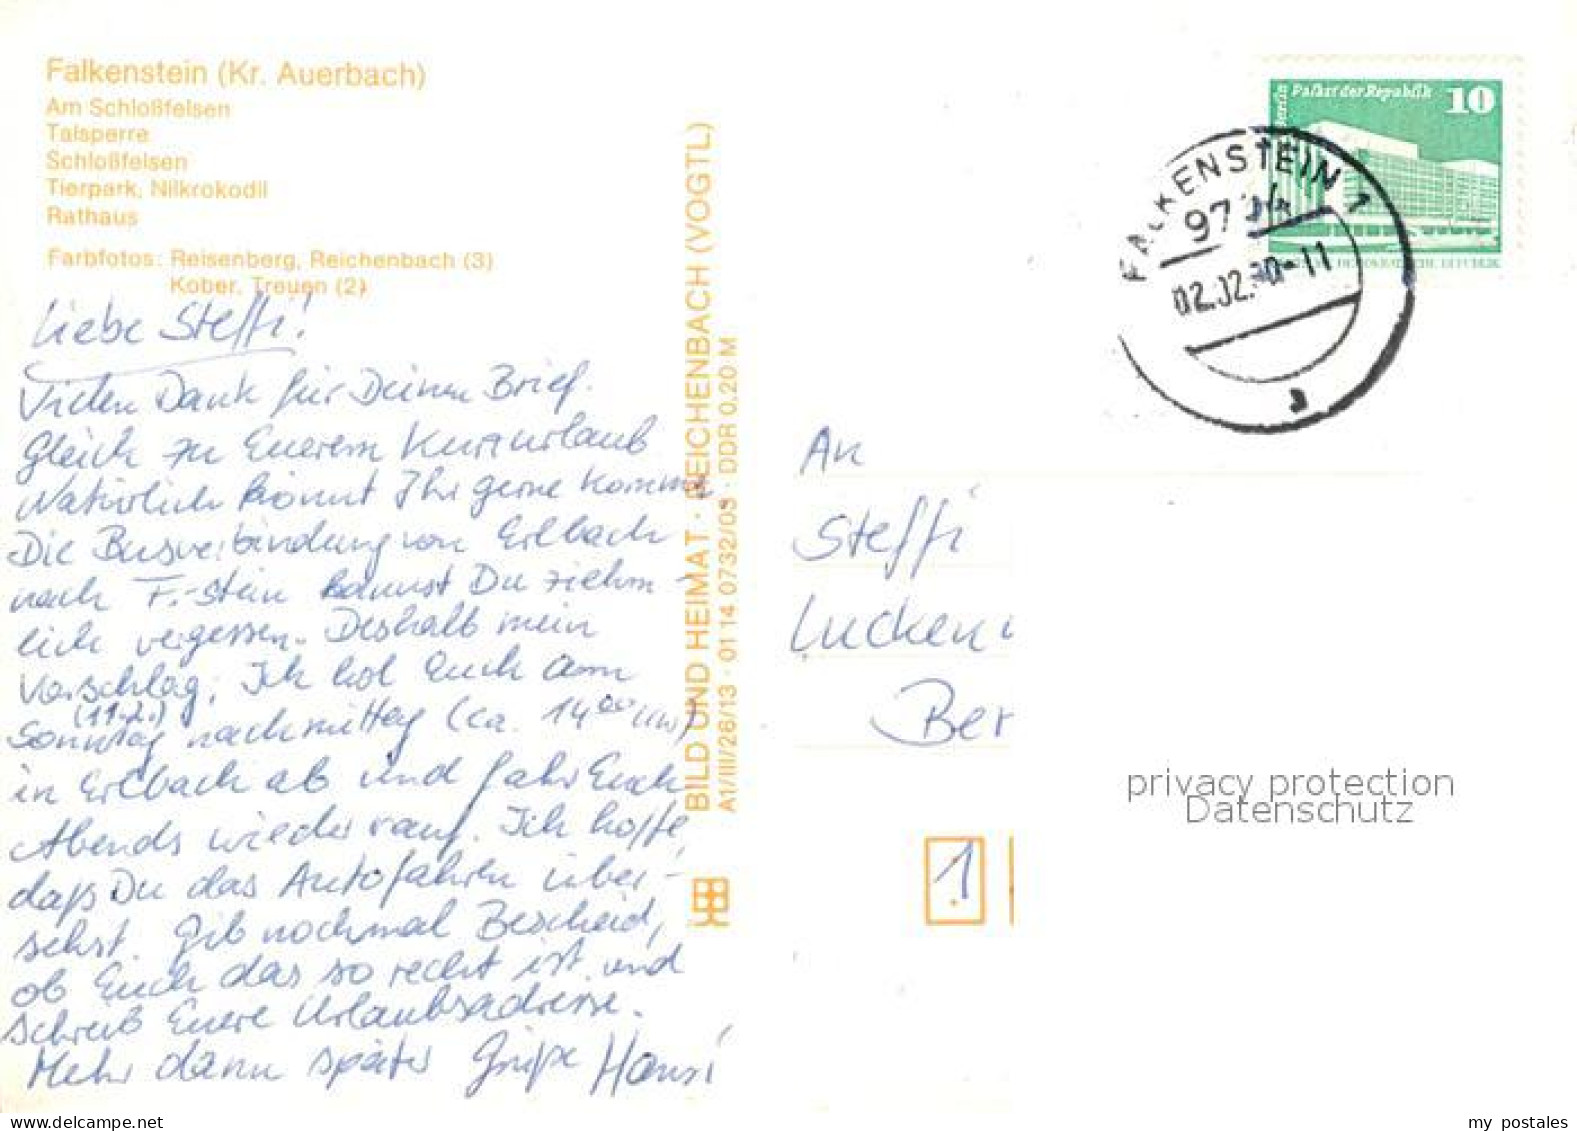 Falkenstein (Kr. Auerbach)
Am Schloßfelsen
Talsperre
Schloßfelsen
Tierpark, Nilkrokodil
Rathaus
Farbfotos: Reisenberg, Reichenbach (3)
Kober, Treuen (2)
Liebe Steffi!
Vielen Dank für Deinen Brief.
Gleich zu Euerem Kurzurlaub
Natürlich könnt Ihr gerne komme.
Die Busverbindung von Erlbach
nach F.-stein kannst Du ziehm-
lich vergessen. Deshalb mein
Vorschlag; Ich hol Euch am
(11.2.)
Sonntag nachmittag (ca. 14⁰⁰ Uhr)
in Erlbach ab und fahr Euch
Abends wieder rauf. Ich hoffe,
daß Du das Autofahren über-
sehst. Gib nochmal Bescheid,
ob Euch das so recht ist und
schreib Euere Urlaubsadresse.
Mehr dann später Grüße Hansi
BILD UND HEIMAT · REICHENBACH (VOGTL)
A1/III/26/13 · 01 14 0732/03 · DDR 0,20 M
Berlin
Palast der Republik
10
DEMOKRATISCHE REPUBLIK
FALKENSTEIN 1
97
02.02.90-11
a
An
Steffi
Lucken
Ber
1
privacy protection
Datenschutz
my postales